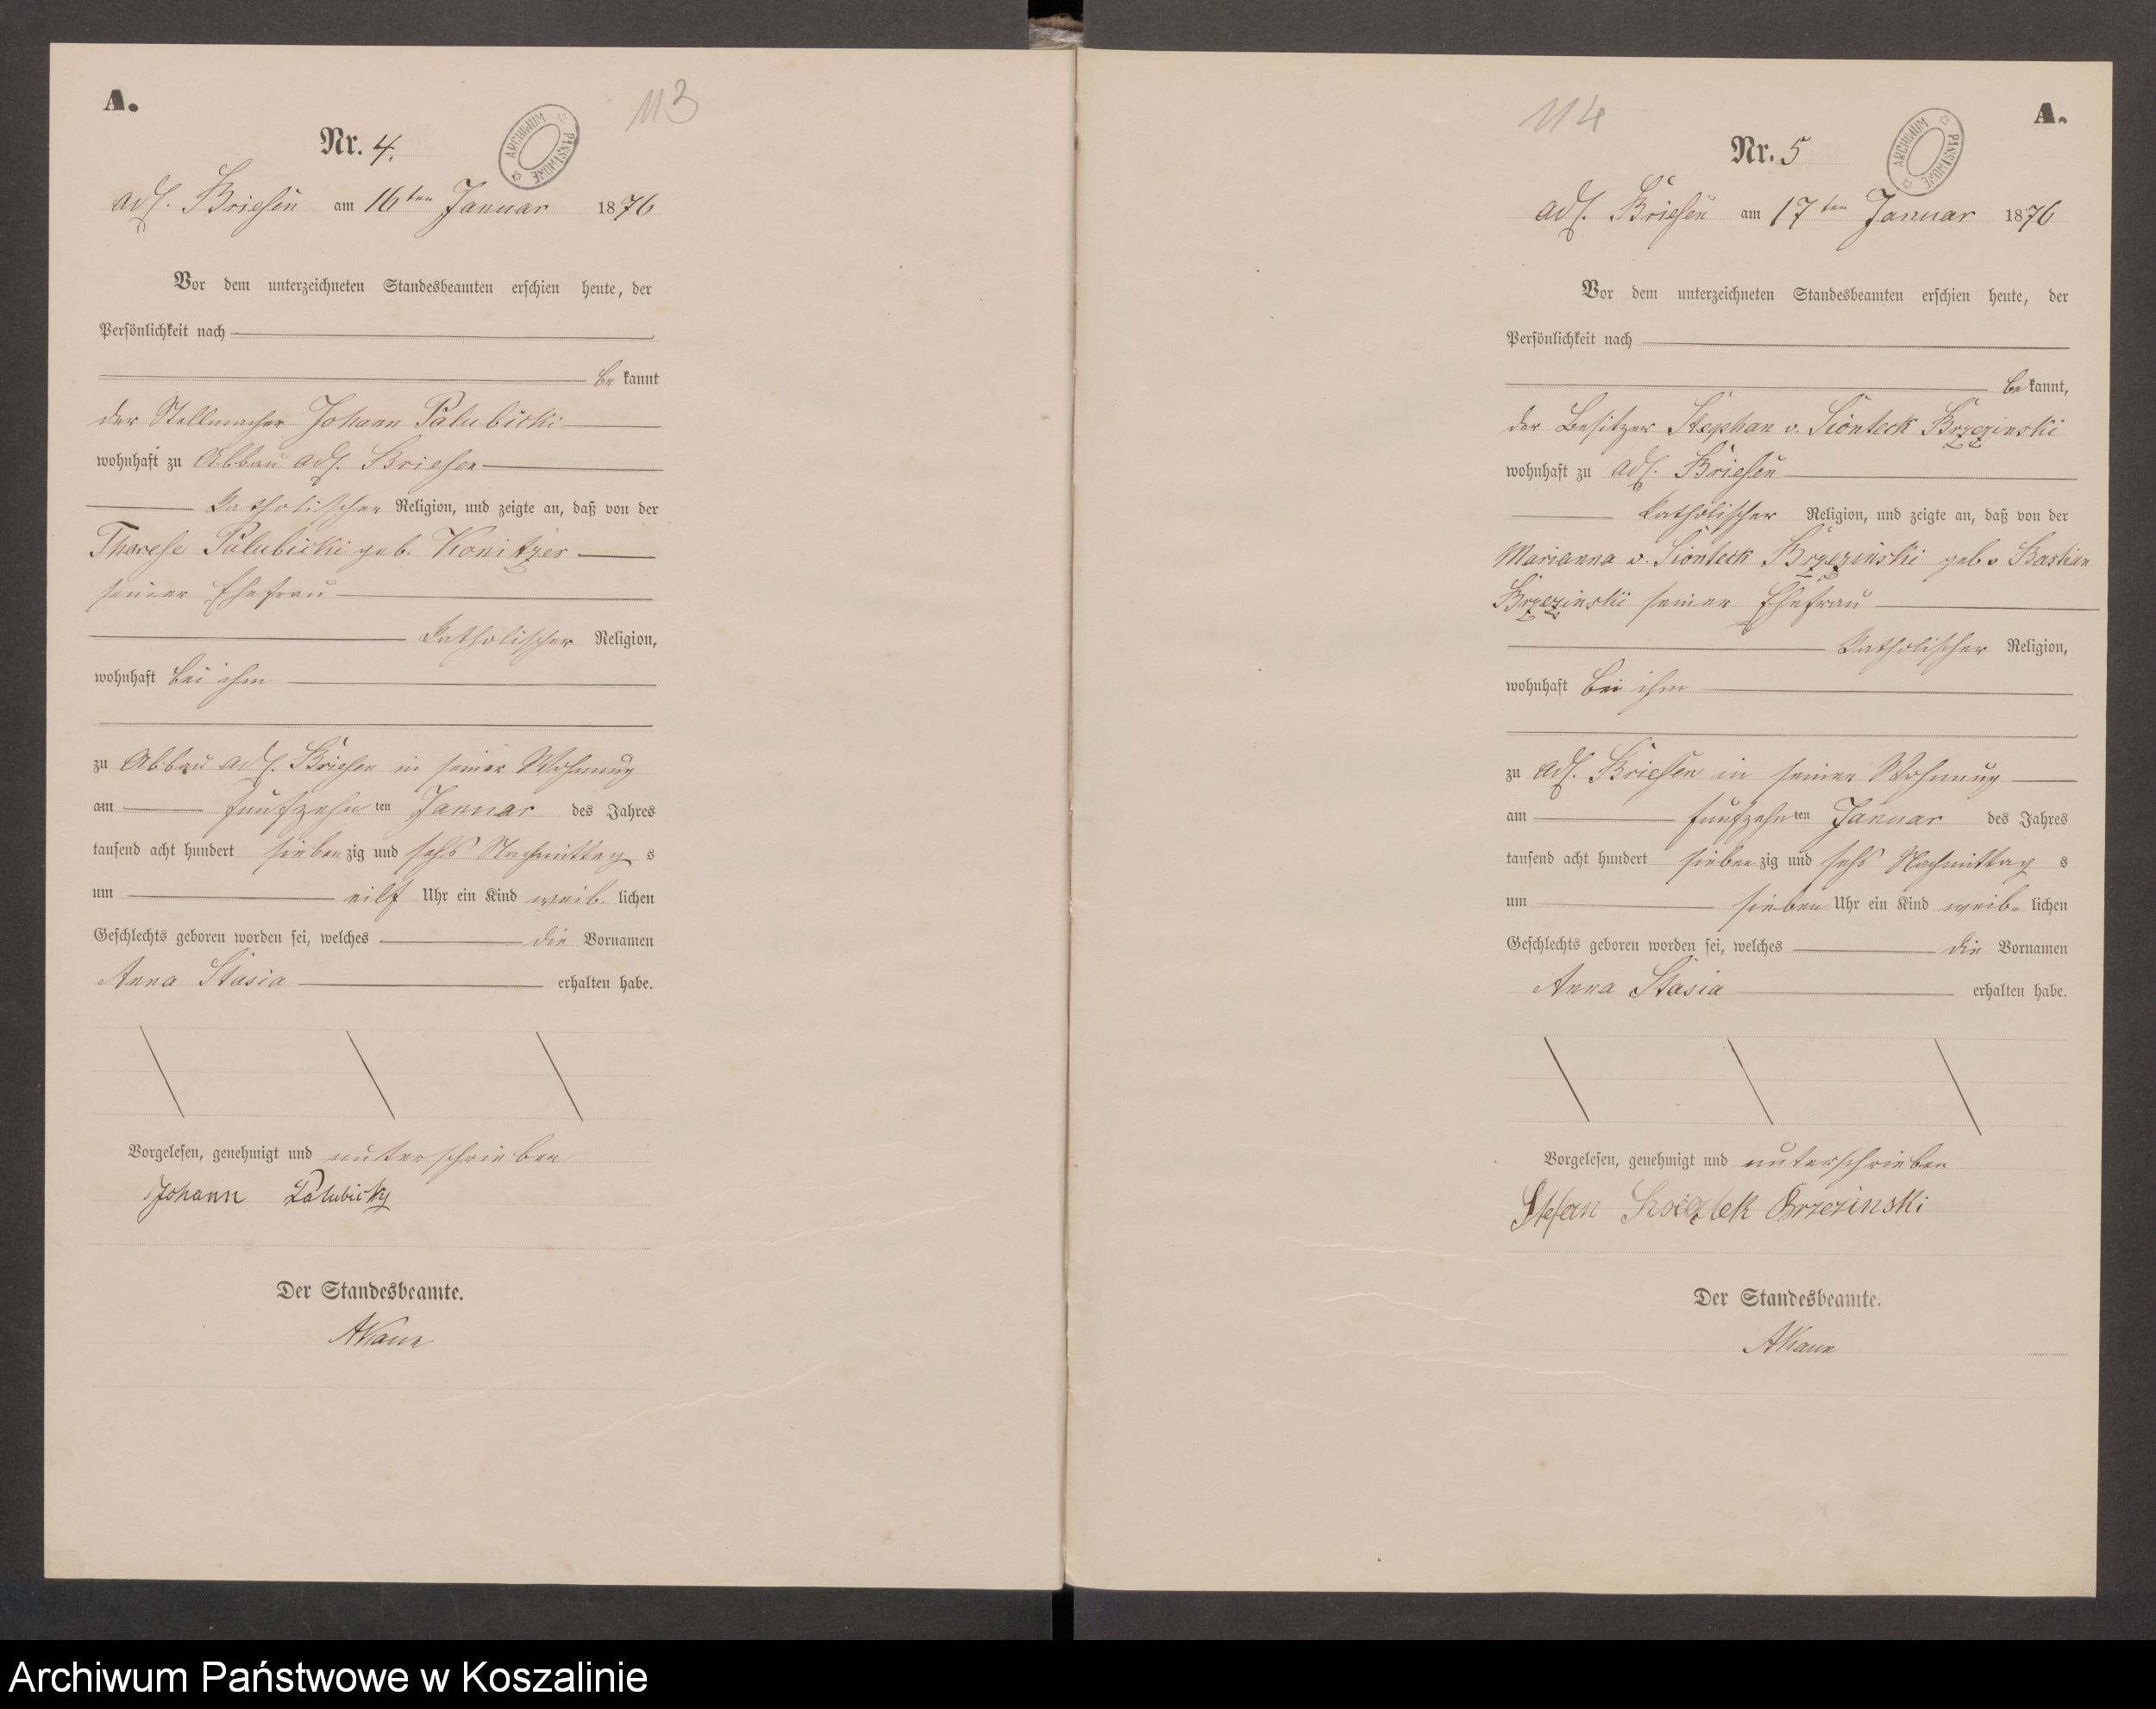 A.
113
Nr. 4.
ARCHIWUM PAŃSTWOWE
Adl. Briesen am 16ten Januar 1876
Vor dem unterzeichneten Standesbeamten erschien heute, der
Persönlichkeit nach
be kannt
der Stellmacher Johann Palubicki
wohnhaft zu Abbau Adl. Briesen
katholischer Religion, und zeigte an, daß von der
Therese Palubicki geb. Konitzer
seiner Ehefrau
katholischer Religion,
wohnhaft bei ihm
zu Abbau Adl. Briesen in seiner Wohnung
am fünfzehn ten Januar des Jahres
tausend acht hundert sieben zig und sechs Nachmittag s
um eilf Uhr ein Kind weib. lichen
Geschlechts geboren worden sei, welches die Vornamen
Anna Stasia erhalten habe.
Vorgelesen, genehmigt und unterschrieben
Johann Palubicky
Der Standesbeamte.
114
A.
Nr. 5
ARCHIWUM PAŃSTWOWE
Adl. Briesen am 17ten Januar 1876
Vor dem unterzeichneten Standesbeamten erschien heute, der
Persönlichkeit nach
be kannt,
der Besitzer Stephan v. Sionteck Brzezinski
wohnhaft zu Adl. Briesen
katholischer Religion, und zeigte an, daß von der
Marianna v. Sionteck Brzezinski geb v Bastian
Brzezinski seiner Ehefrau
katholischer Religion,
wohnhaft bei ihm
zu Adl. Briesen in seiner Wohnung
am fünfzehn ten Januar des Jahres
tausend acht hundert sieben zig und sechs Nachmittag s
um sieben Uhr ein Kind weib. lichen
Geschlechts geboren worden sei, welches die Vornamen
Anna Stasia erhalten habe.
Vorgelesen, genehmigt und unterschrieben
Stefan Brzezinski
Der Standesbeamte.
Archiwum Państwowe w Koszalinie